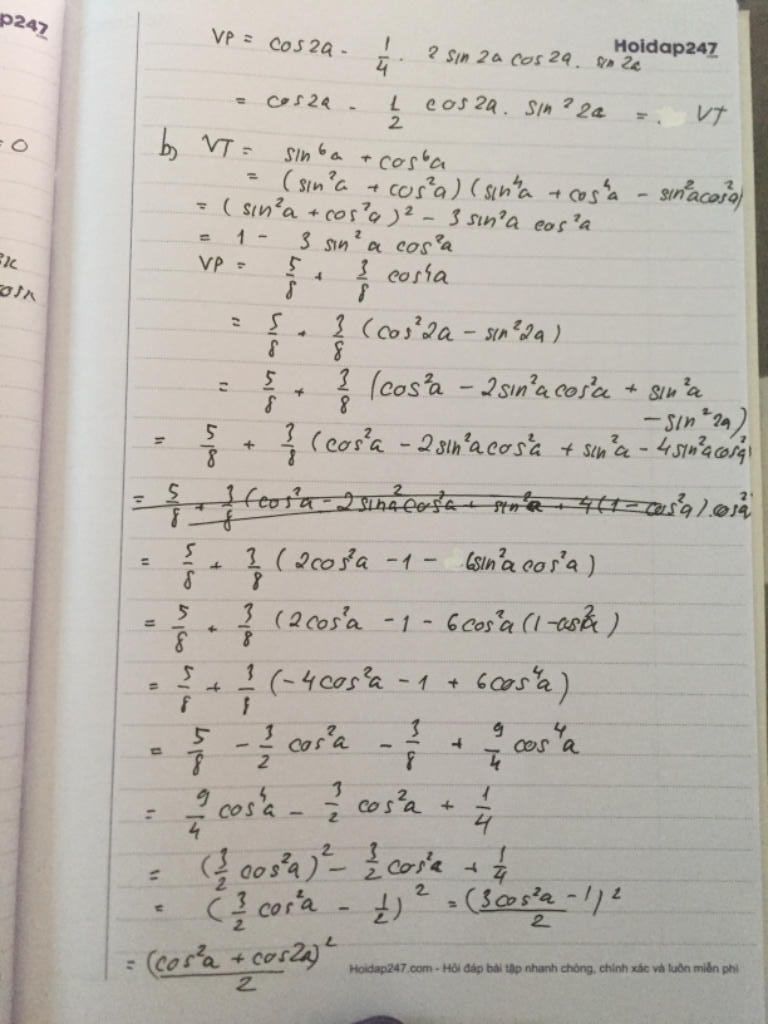 p247
Hoidap247
VP = cos2a - 1/4 . 2 sin 2a cos2a. sin 2a
= cos2a - 1/2 cos2a. sin² 2a = VT
= 0
b, VT = sin⁶a + cos⁶a
= (sin²a + cos²a) (sin⁴a + cos⁴a - sin²acos²a)
= (sin²a + cos²a)² - 3 sin²a cos²a
= 1 - 3 sin²a cos²a
VP = 5/8 + 3/8 cos4a
= 5/8 + 3/8 (cos²2a - sin²2a)
= 5/8 + 3/8 (cos²a - 2sin²acos²a + sin²a
- sin²2a)
= 5/8 + 3/8 (cos²a - 2sin²acos²a + sin²a - 4sin²acos²a
= 5/8 + 3/8 (cos²a - 2sin²acos²a + sin²a + 4(1 - cos²a).cos²a
= 5/8 + 3/8 (2cos²a - 1 - 6sin²a cos²a)
= 5/8 + 3/8 (2cos²a - 1 - 6cos²a (1-cos²a)
= 5/8 + 3/8 (-4cos²a - 1 + 6cos⁴a)
= 5/8 - 3/2 cos²a - 3/8 + 9/4 cos⁴a
= 9/4 cos⁴a - 3/2 cos²a + 1/4
= (3/2 cos²a)² - 3/2 cos²a + 1/4
= (3/2 cos²a - 1/2)² = (3cos²a - 1)²/2
= (cos²a + cos2a)²/2
Hoidap247.com - Hỏi đáp bài tập nhanh chóng, chính xác và luôn miễn phí